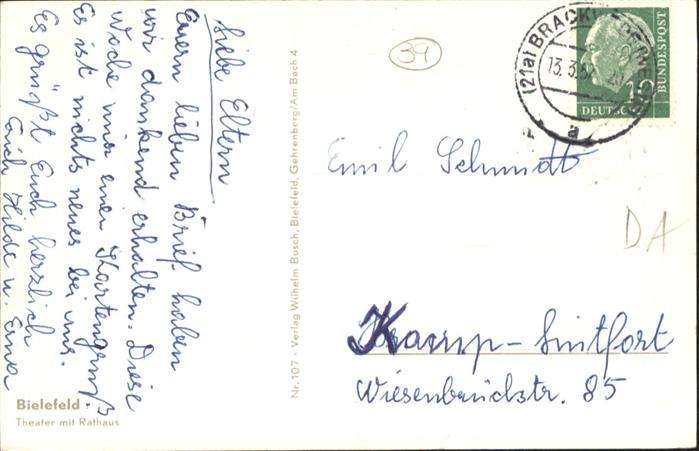 Liebe Eltern
Euern lieben Brief haben
wir dankend erhalten. Diese
Woche nur einen Kartengruß
Es ist nichts neues bei uns.
Es grüßt Euch herzlich
Erich Hilde u.
Bielefeld
Theater mit Rathaus
Nr. 107 - Verlag Wilhelm Busch, Bielefeld, Gehrenberg/Am Bach 4
39
(21a) BRACKWEDE
13.3.57
a
10
DEUTSCHE
BUNDESPOST
Emil Schmidt
DA
Kamp-Lintfort
Wiesenbruckstr. 85